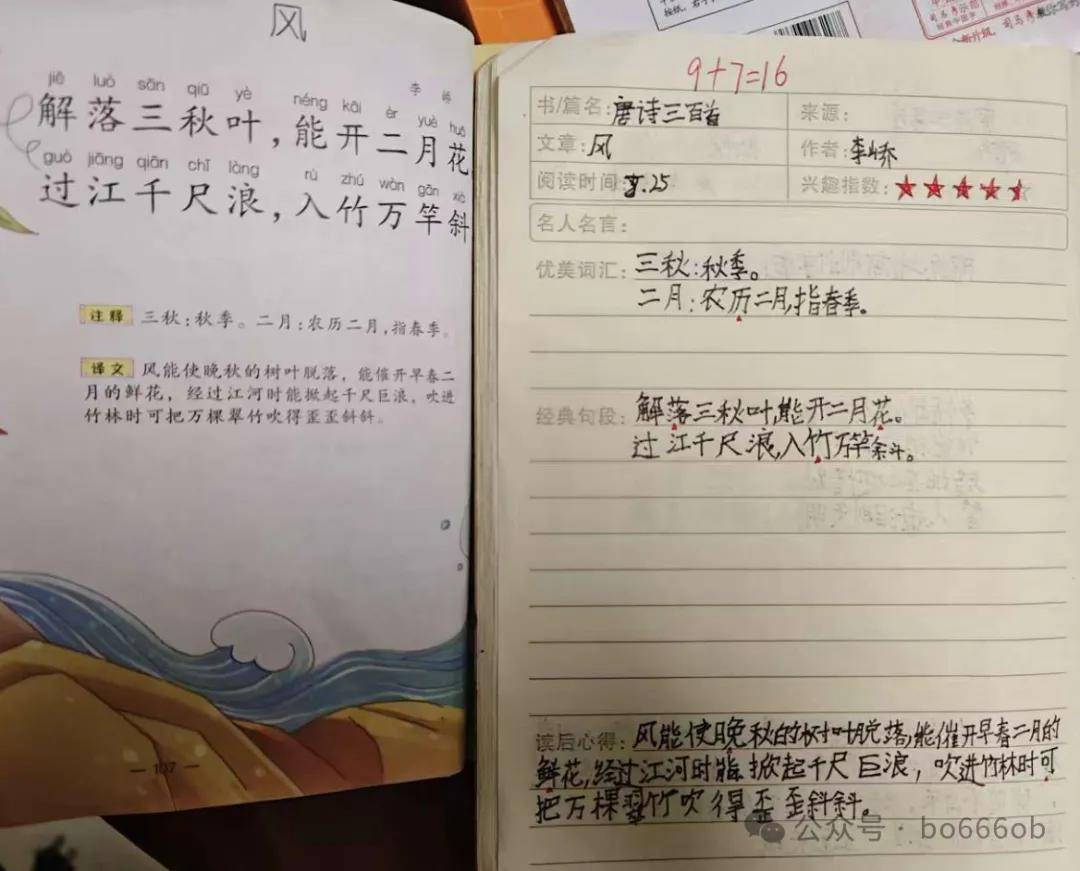 风
李峤
jiě luò sān qiū yè néng kāi èr yuè huā
解落三秋叶，能开二月花
guò jiāng qiān chǐ làng rù zhú wàn gān xié
过江千尺浪，入竹万竿斜
注释 三秋：秋季。二月：农历二月，指春季。
译文 风能使晚秋的树叶脱落，能催开早春二
月的鲜花，经过江河时能掀起千尺巨浪，吹进
竹林时可把万棵翠竹吹得歪歪斜斜。
— 107 —
9+7=16
书/篇名：唐诗三百首 来源：
文章：风 作者：李峤
阅读时间：8.25 兴趣指数：
名人名言：
优美词汇：三秋：秋季。
二月：农历二月，指春季。
经典句段：解落三秋叶，能开二月花。
过江千尺浪，入竹万竿斜。
读后心得：风能使晚秋的树叶脱落，能催开早春二月的
鲜花，经过江河时能掀起千尺巨浪，吹进竹林时可
把万棵翠竹吹得歪歪斜斜。
公众号 · bo666ob